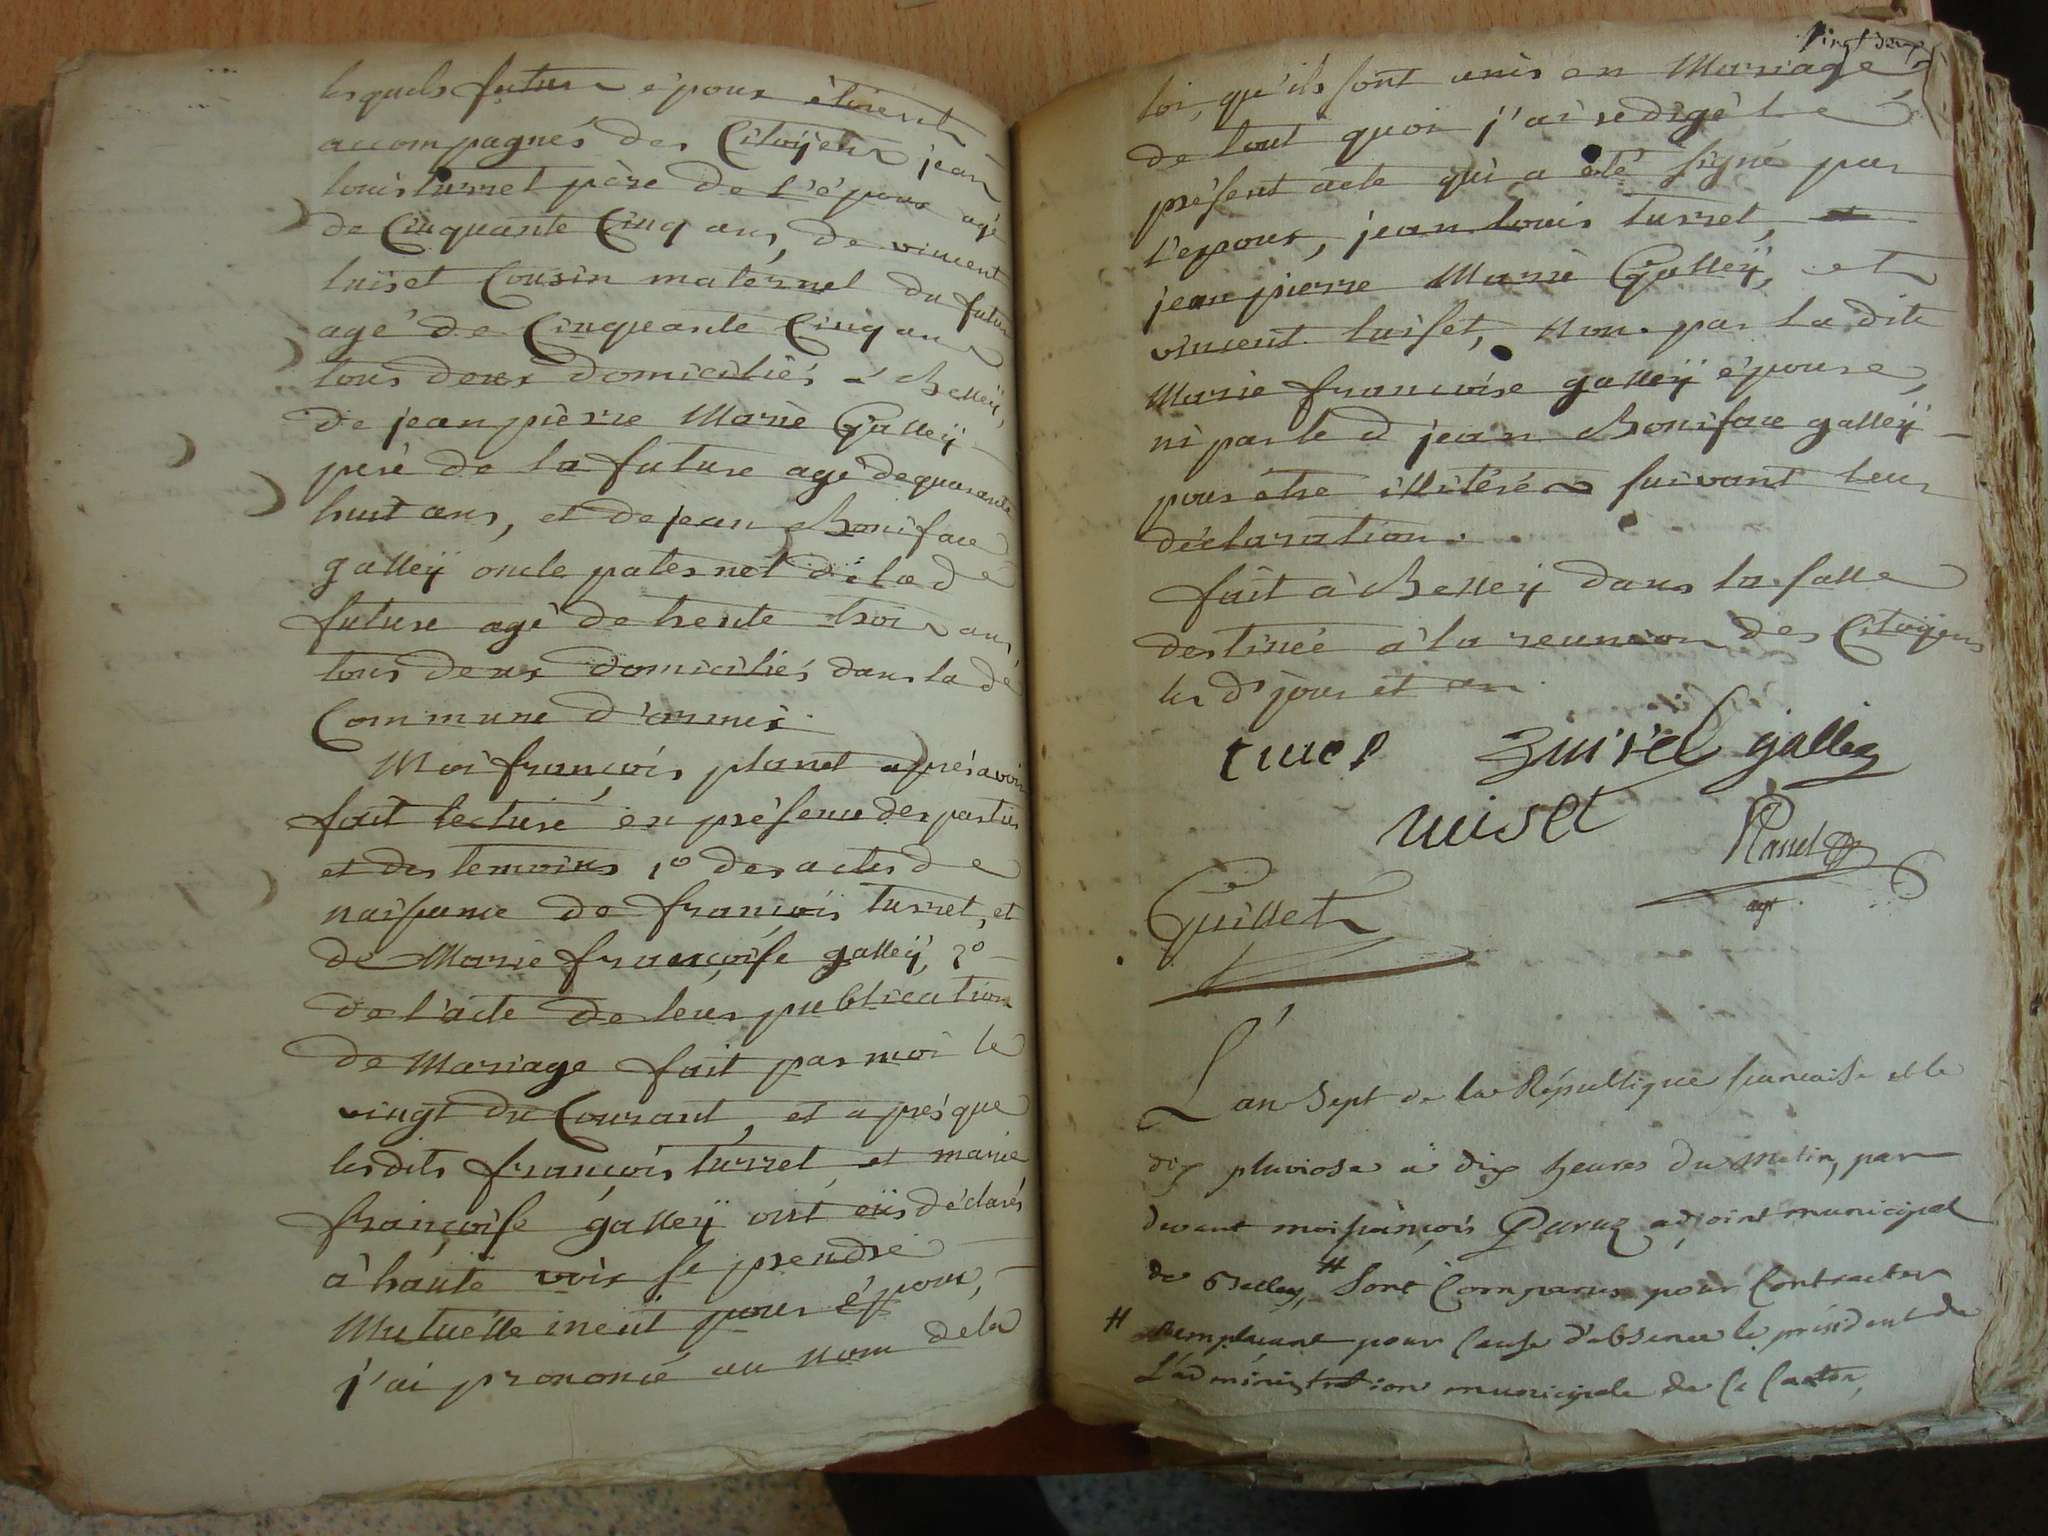 lesquels futurs époux étoient
accompagnés des Citoÿens jean
louis turrel père de l'époux agé
de Cinquante Cinq ans, de vincent
luiset Cousin maternel du futur
agé de Cinqueante Cinq ans
tous deux domiciliés à Belleÿ,
de jean pierre Marie Galleÿ
peré de la future agé de quarante
huit ans, et de jean Boniface
galleÿ oncle paternel de la de
future agé de trente trois ans,
tous deux domiciliés dans la de
Commune d'armix.
Moi françois planet après avoir
fait lecture en présence des parties
et des temoins 1o des actes de
naissance de françois turrel, et
de Marie françoise galleÿ, 2o
de l'acte de leur publication
de Mariage fait par moi le
vingt du Courant, et après que
lesdits françois turrel et marie
françoise galleÿ ont eüs déclarés
à haute voix se prendre
Mutuellement pour époux,
j'ai prononcé au nom de la
vingt deux
loi, qu'ils sont unis en Mariage
de tout quoi j'ai redigé le
présent acte qui a été signé par
l'epoux, jean louis turrel,
jean pierre Marie Galleÿ, et
vincent luiset, Non par la dite
Marie francoise galleÿ épouse,
ni par le d jean Boniface galleÿ
pour étre illitérés suivant leur
déclaration.
fait à Belleÿ dans la salle
destinée à la reunion des Citoyens
les d jour et an.
turel galley
luiset Planet
agt
Guillet
L'an Sept de la République francaise et le
dix pluviose à dix heures du matin, par
devant moi françois Parux adjoint municipal
de Belley, # Sont Comparus pour Contracter
# remplacant pour Cause d'absence le président de
L'administration municipale de Ce Canton,